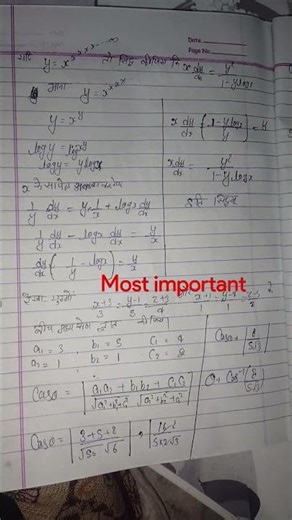 Date
Page No.
यदि y = x^x^x^x^...∞ तो सिद्ध कीजिए कि x dy/dx = y²/(1-y logx)
माना y = x^x^x^x
y = x^y
logy = logx^y
logy = y logx
x के सापेक्ष
1/y dy/dx = y·1/x + logx dy/dx
1/y dy/dx - logx dy/dx = y/x
dy/dx (1/y - logx) = y/x
x dy/dx (1-y logx / y) = y
x dy/dx = y²/(1-y logx)
इति सिद्धम्
Most important
x+3/3 = y-1/5 = z+3/4 और x+1/1 = y-4/1 = z-5/2
बीच का कोण ज्ञात कीजिए।
a₁ = 3 b₁ = 5 C₁ = 4
a₂ = 1 b₂ = 1 C₂ = 2
Cosθ = |a₁a₂ + b₁b₂ + C₁C₂ / √a²+b²+c² √a²+b²+c²|
Cosθ = |3+5+8 / √50 √6| = |16 / 5×2√3|
Cosθ = |8/5√3|
θ = Cos⁻¹(8/5√3)